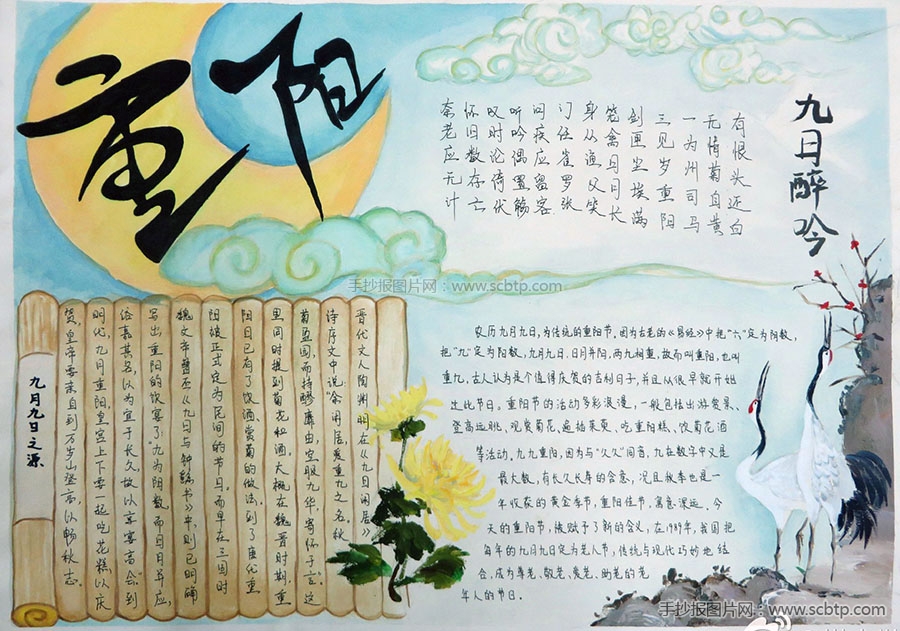 重阳
九日醉吟
有恨头还白
无情菊自黄
一为州司马
三见岁重阳
剑匣尘埃满
笼禽日月长
身从渔父笑
门任雀罗张
问疾应留客
听吟偶置觞
叹时论倚伏
怀旧数存亡
奈老应无计
手抄报图片网:www.scbtp.com
九月九日之源
晋代文人陶渊明在《九日闲居》
诗序文中说:"余闲居,爱重九之名。秋
菊盈园,而持醪靡由,空服九华,寄怀于言。"这
里同时提到菊花和酒。大概在魏晋时期,重
阳日已有了饮酒、赏菊的做法。到了唐代重
阳被正式定为民间的节日。而早在三国时
魏文帝曹丕《九日与钟繇书》中,则已明确
写出重阳的饮宴了:"九为阳数,而日月并应,
俗嘉其名,以为宜于长久,故以享宴高会。"到
明代,九月重阳,皇宫上下要一起吃花糕以庆
贺,皇帝要亲自到万岁山登高,以畅秋志。
农历九月九日,为传统的重阳节。因为古老的《易经》中把"六"定为阴数,
把"九"定为阳数,九月九日,日月并阳,两九相重,故而叫重阳,也叫
重九,古人认为是个值得庆贺的吉利日子,并且从很早就开始
过此节日。重阳节的活动多彩浪漫,一般包括出游赏景、
登高远眺、观赏菊花、遍插茱萸、吃重阳糕、饮菊花酒
等活动。九九重阳,因为与"久久"同音,九在数字中又是
最大数,有长久长寿的含意,况且秋季也是一
年收获的黄金季节,重阳佳节,寓意深远。今
天的重阳节,被赋予了新的含义,在1989年,我国把
每年的九月九日定为老人节,传统与现代巧妙地结
合,成为尊老、敬老、爱老、助老的老
年人的节日。
手抄报图片网:www.scbtp.com